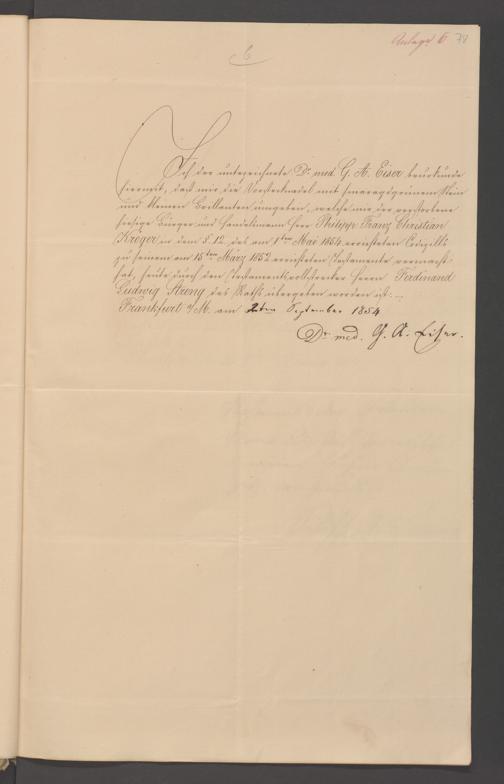 Anlage 6 78
6
Ich der unterzeichnete Dr. med. G. A. Eiser beurkunde
hiermit, daß mir die Vorstecknadel mit smaragdgrünem Stein
und kleinen Brillanten umgeben, welche mir der verstorbene
hiesige Bürger und Handelsmann Herr Philipp Franz Christian
Kröger in dem § 12. des am 1ten Mai 1854 errichteten Codizills
zu seinem am 15ten März 1852 errichteten Testamente vermacht
hat, heute durch den Testamentsvollstrecker Herrn Ferdinand
Ludwig Streng des Raths übergeben worden ist.
Frankfurt a/M. am 2ten September 1854
Dr. med. G. A. Eiser.